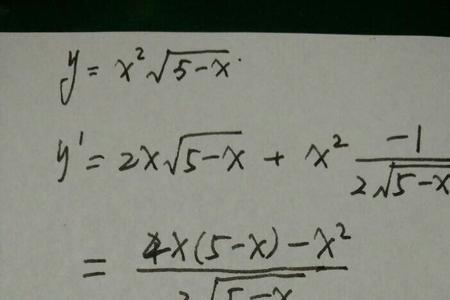 y = x²√(5-x)
y' = 2x√(5-x) + x² (-1)/(2√(5-x))
= (4x(5-x)-x²)/(2√(5-x))